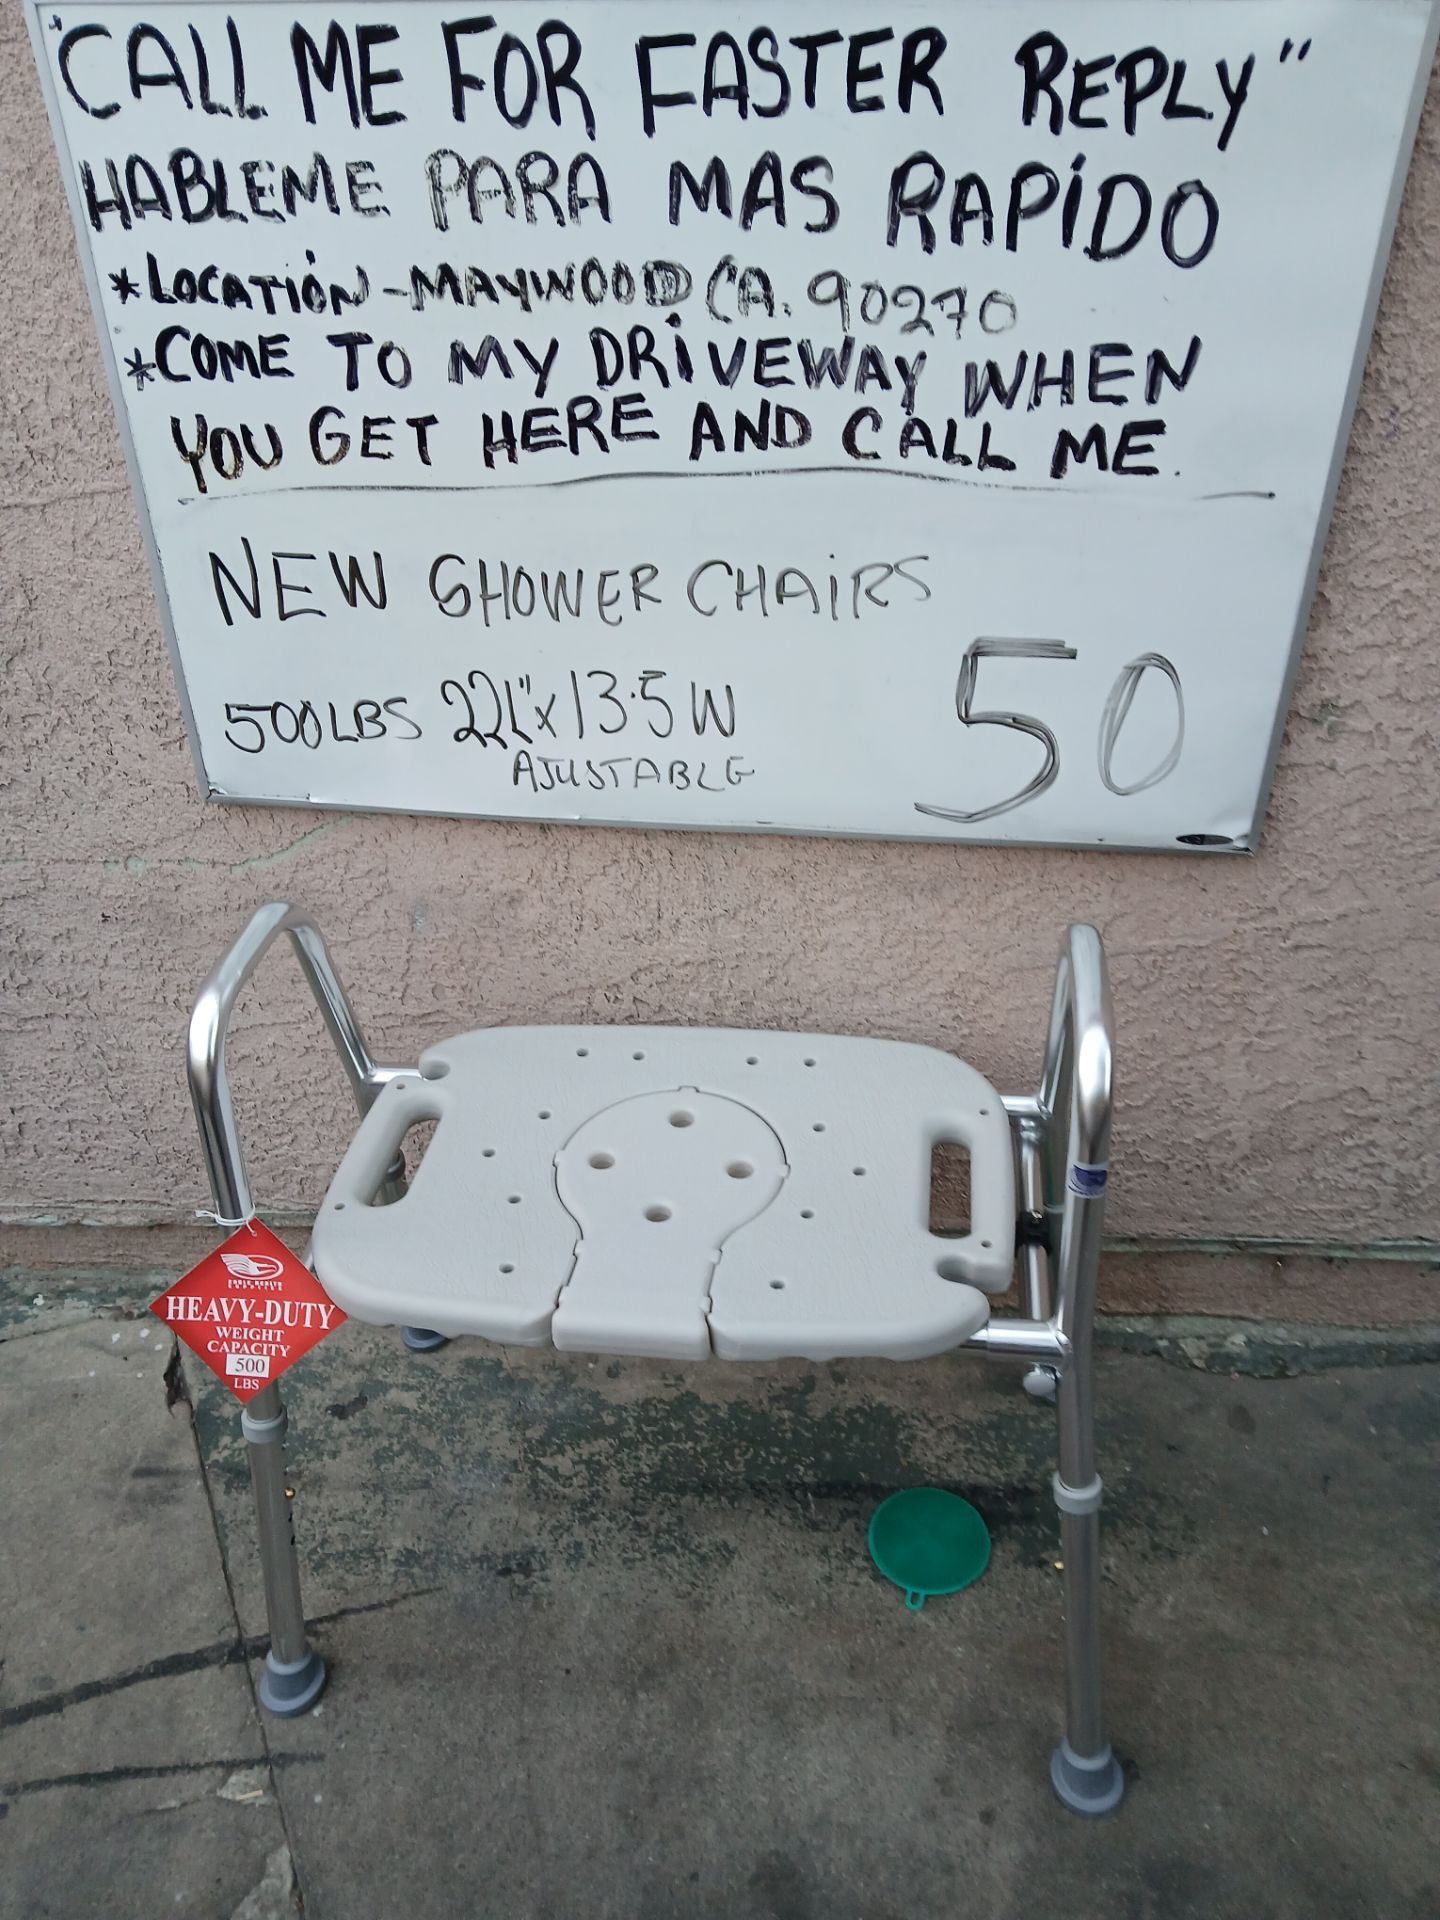 "CALL ME FOR FASTER REPLY"
HABLEME PARA MAS RAPIDO
*LOCATION-MAYWOOD CA. 90270
*COME TO MY DRIVEWAY WHEN
YOU GET HERE AND CALL ME.
NEW SHOWER CHAIRS
500LBS 22L"x13.5W
AJUSTABLE
50
HEAVY-DUTY
WEIGHT
CAPACITY
500
LBS